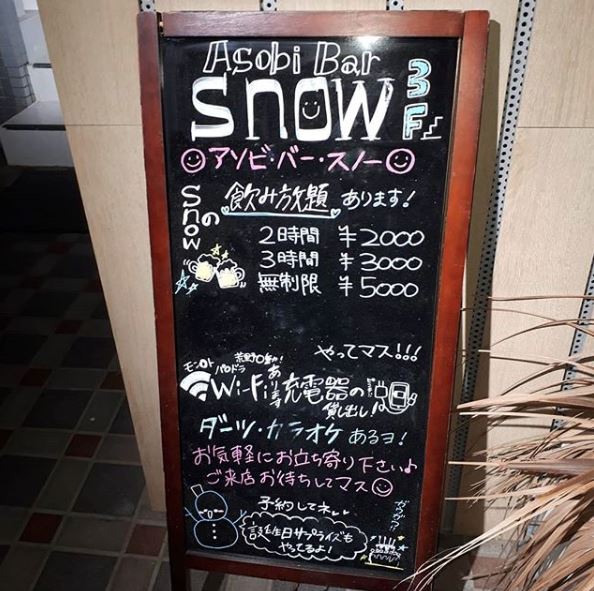 Asobi Bar
snow 3F
アソビ・バー・スノー
snowの
飲み放題 あります!
2時間 ¥2000
3時間 ¥3000
無制限 ¥5000
やってマス!!!
モンスト
パズドラ
Wi-Fi あります
充電器の
貸し出し!
ダーツ・カラオケ あるヨ!
お気軽にお立ち寄り下さい♪
ご来店お待ちしてマス
予約してネ
誕生日サプライズも
やってるよ!